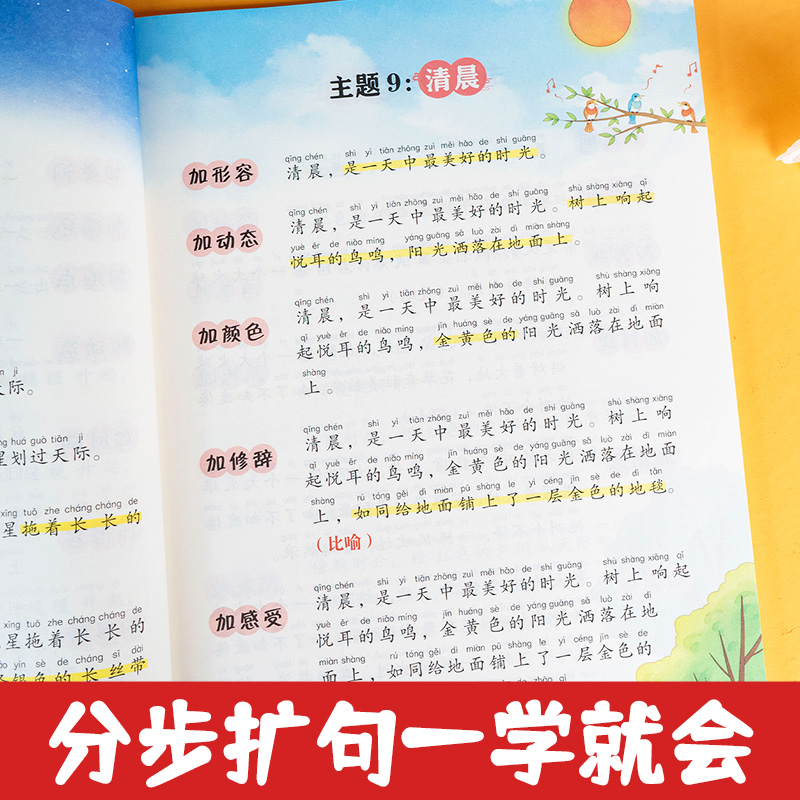 主题9：清晨
qīng chén shì yì tiān zhōng zuì měi hǎo de shí guāng
加形容 清晨，是一天中最美好的时光。
qīng chén shì yì tiān zhōng zuì měi hǎo de shí guāng shù shàng xiǎng qǐ
加动态 清晨，是一天中最美好的时光。树上响起
yuè ěr de niǎo míng yáng guāng sǎ luò zài dì miàn shàng
悦耳的鸟鸣，阳光洒落在地面上。
qīng chén shì yì tiān zhōng zuì měi hǎo de shí guāng shù shàng xiǎng
清晨，是一天中最美好的时光。树上响
qǐ yuè ěr de niǎo míng jīn huáng sè de yáng guāng sǎ luò zài dì miàn
加颜色 起悦耳的鸟鸣，金黄色的阳光洒落在地面
shàng
上。
qīng chén shì yì tiān zhōng zuì měi hǎo de shí guāng shù shàng xiǎng
清晨，是一天中最美好的时光。树上响
qǐ yuè ěr de niǎo míng jīn huáng sè de yáng guāng sǎ luò zài dì miàn
加修辞 起悦耳的鸟鸣，金黄色的阳光洒落在地面
shàng rú tóng gěi dì miàn pū shàng le yì céng jīn sè de dì tǎn
上，如同给地面铺上了一层金色的地毯。
（比喻）
qīng chén shì yì tiān zhōng zuì měi hǎo de shí guāng shù shàng xiǎng qǐ
清晨，是一天中最美好的时光。树上响起
yuè ěr de niǎo míng jīn huáng sè de yáng guāng sǎ luò zài dì
加感受 悦耳的鸟鸣，金黄色的阳光洒落在地
miàn shàng rú tóng gěi dì miàn pū shàng le yì céng jīn sè de
面上，如同给地面铺上了一层金色的
jì
天际。
huá guò tiān jì
星划过天际。
xīng tuō zhe cháng cháng de
星拖着长长的
xīng tuō zhe cháng cháng de
星拖着长长的
yín sè de cháng sī dài
银色的长丝带
分步扩句一学就会